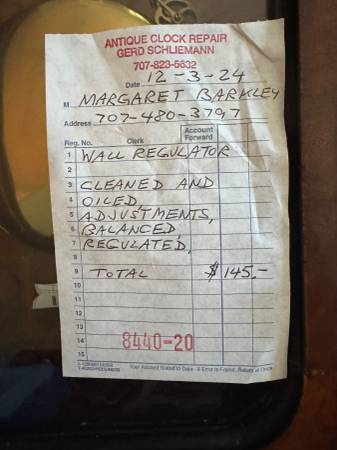 ANTIQUE CLOCK REPAIR
GERD SCHLIEMANN
707-823-5632
Date 12-3-24
M MARGARET BARKLEY
Address 707-480-3797
Reg. No. Clerk Account Forward
1 WALL REGULATOR
2
3 CLEANED AND
4 OILED,
5 ADJUSTMENTS,
6 BALANCED
7 REGULATED,
8
9 TOTAL $145.-
10
11
12
13
14 8440-20
15
Your Account Stated to Date - If Error is Found, Return at Once